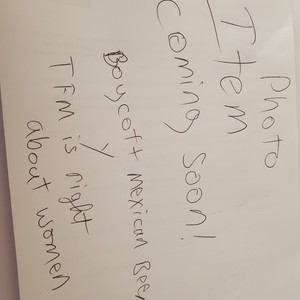 Photo
Item
Coming Soon!
Boycott Mexican Beer
TFM is right
about women